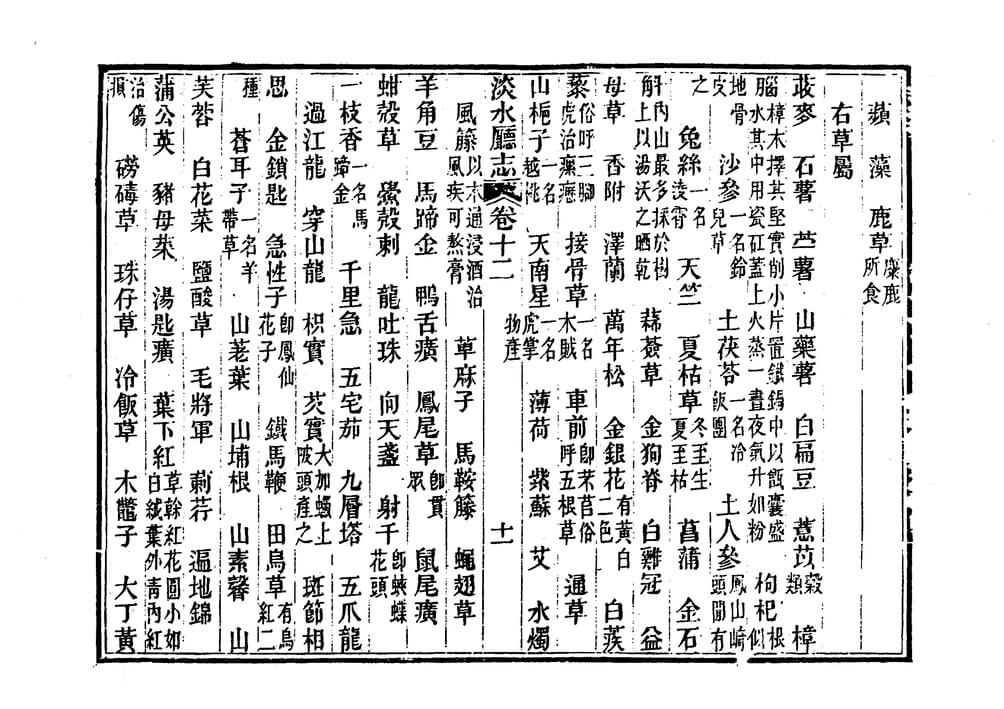 蘋　藻　鹿草麋鹿所食
右草屬
蕺麥　石薯　苎薯　山藥薯　白扁豆　薏苡穀類　樟
腦樟木擇其堅實削小片置鐵鍋中以飯囊盛水其中用瓷缸蓋上火蒸一晝夜氣升如粉　枸杞根似
地骨皮　沙參一名鈴兒草　土茯苓一名冷飯團　土人參鳳山崎頭間有
之　兔絲一名淩霄　天竺　夏枯草冬至生夏至枯　菖蒲　金石
斛內山最多採於樹上以湯沃之晒乾　蒜薟草　金狗脊　白雞冠　益
母草　香附　澤蘭　萬年松　金銀花有黃白二色　白蒺
藜俗呼三腳虎治癩癧　接骨草一名木賊　車前即芣苢俗呼五根草　通草
山梔子一名越桃　天南星一名虎掌　薄荷　紫蘇　艾　水燭
淡水廳志　卷十二　物產　十一
風籐以末通浸酒治風疾可熬膏　草麻子　馬鞍籐　蠅翅草
羊角豆　馬蹄金　鴨舌癀　鳳尾草即貫眾　鼠尾癀
蚶殼草　鱟殼刺　龍吐珠　向天盞　射千即蛺蝶花頭
一枝香一名馬蹄金　千里急　五宅茄　九層塔　五爪龍
過江龍　穿山龍　枳實　芡實大加蠟上陂頭產之　斑節相
思　金鎖匙　急性子即鳳仙花子　鐵馬鞭　田烏草有烏紅二
種　蒼耳子一名羊帶草　山荖葉　山埔根　山素馨　山
芙蓉　白花菜　鹽酸草　毛將軍　蒴荇　遍地錦
蒲公英　豬母菜　湯匙癀　葉下紅草幹紅花圓小如白絨葉外青內紅
治傷損　磅碡草　珠仔草　冷飯草　木鼈子　大丁黃